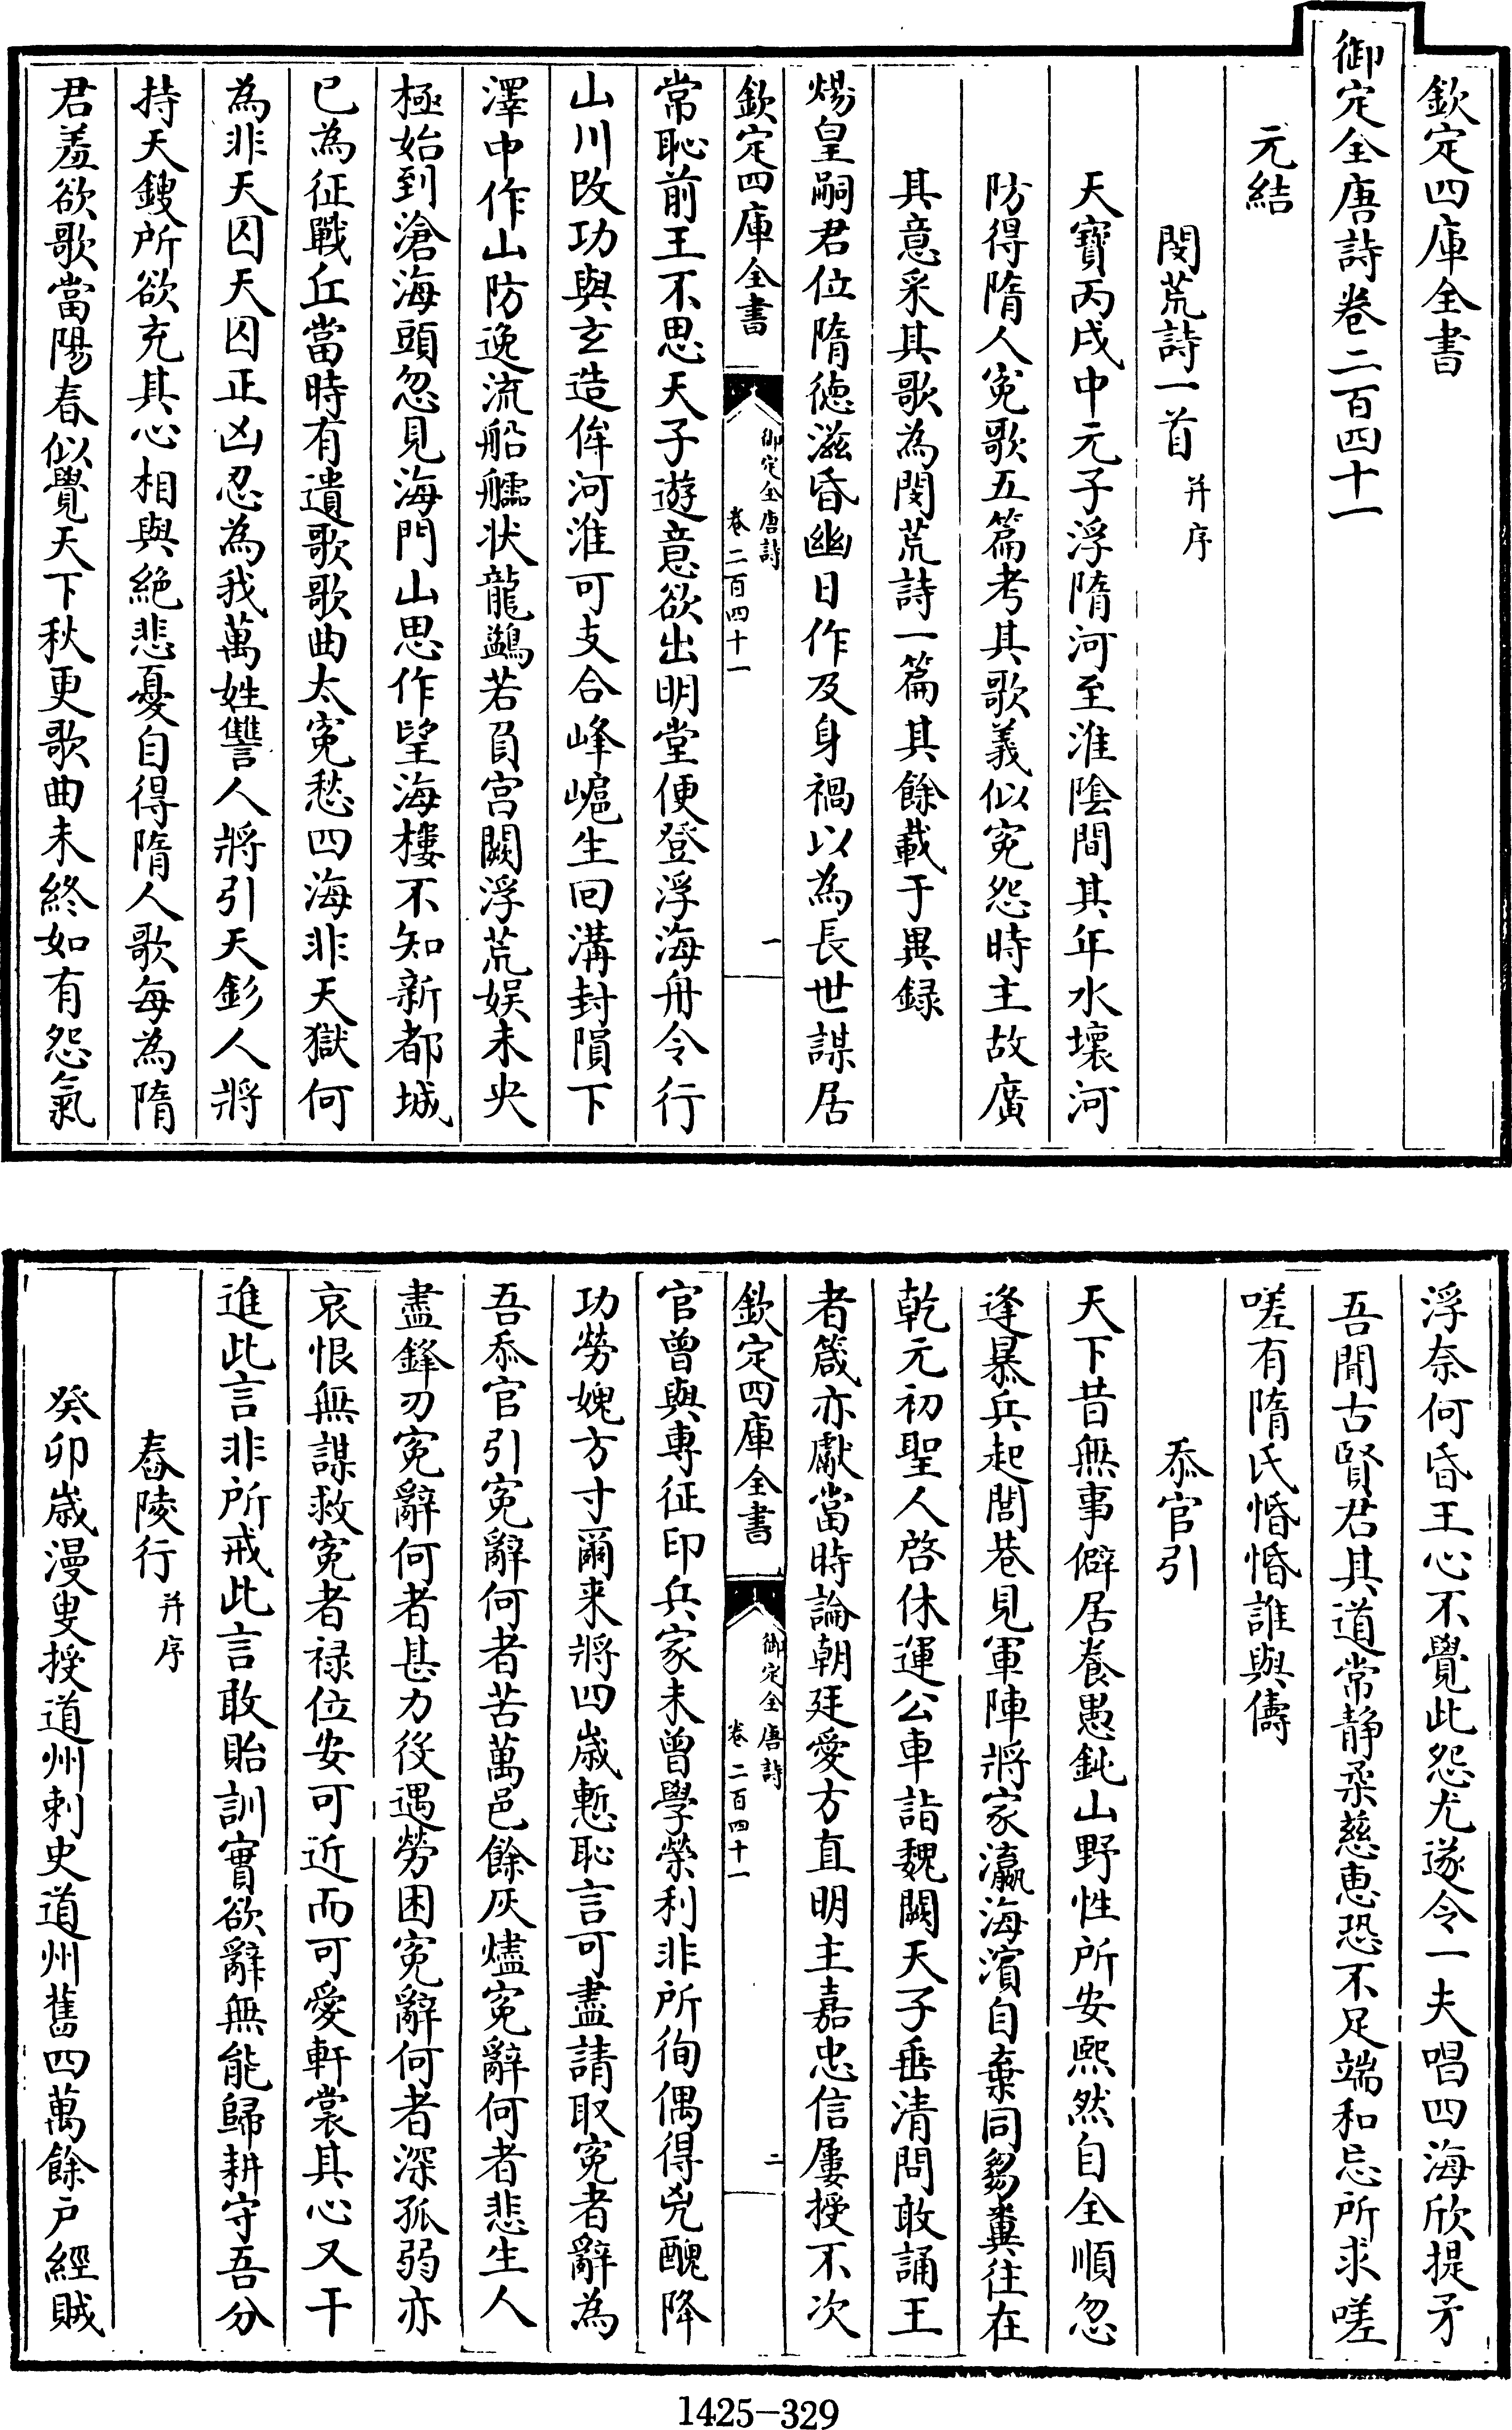 欽定四庫全書
御定全唐詩卷二百四十一
元結
閔荒詩一首并序
天寶丙戌中元子浮隋河至淮陰間其年水壞河
防得隋人寃歌五篇考其歌義似寃怨時主故廣
其意采其歌為閔荒詩一篇其餘載于異録
煬皇嗣君位隋德滋昏幽日作及身禍以為長世謀居
欽定四庫全書
御定全唐詩
卷二百四十一
一
常恥前王不思天子遊意欲出明堂便登浮海舟令行
山川改功與玄造侔河淮可支合峰㟓生回溝封隕下
澤中作山防逸流船艫状龍鷁若負宫闕浮荒娱未央
極始到滄海頭忽見海門山思作望海樓不知新都城
已為征戰丘當時有遺歌歌曲太寃愁四海非天獄何
為非天囚天囚正凶忍為我萬姓讐人將引天釤人將
持天鎪所欲充其心相與絶悲憂自得隋人歌每為隋
君羞欲歌當陽春似覺天下秋更歌曲未終如有怨氣
浮奈何昏王心不覺此怨尤遂令一夫唱四海欣提矛
吾聞古賢君其道常静柔慈恵恐不足端和忘所求嗟
嗟有隋氏惛惛誰與儔
忝官引
天下昔無事僻居養愚鈍山野性所安熙然自全順忽
逢暴兵起閭巷見軍陣將家瀛海濵自棄同芻糞往在
乾元初聖人啓休運公車詣魏闕天子垂清問敢誦王
者箴亦獻當時論朝廷愛方直明主嘉忠信屢授不次
欽定四庫全書
御定全唐詩
卷二百四十一
二
官曾與專征印兵家未曾學榮利非所徇偶得兇醜降
功勞媿方寸爾来將四歳慙恥言可盡請取寃者辭為
吾忝官引寃辭何者苦萬邑餘灰燼寃辭何者悲生人
盡鋒刃寃辭何者甚力役遇勞困寃辭何者深孤弱亦
哀恨無謀救寃者禄位安可近而可愛軒裳其心又干
進此言非所戒此言敢貽訓實欲辭無能歸耕守吾分
舂陵行并序
癸卯歳漫叟授道州刺史道州舊四萬餘户經賊
1425-329